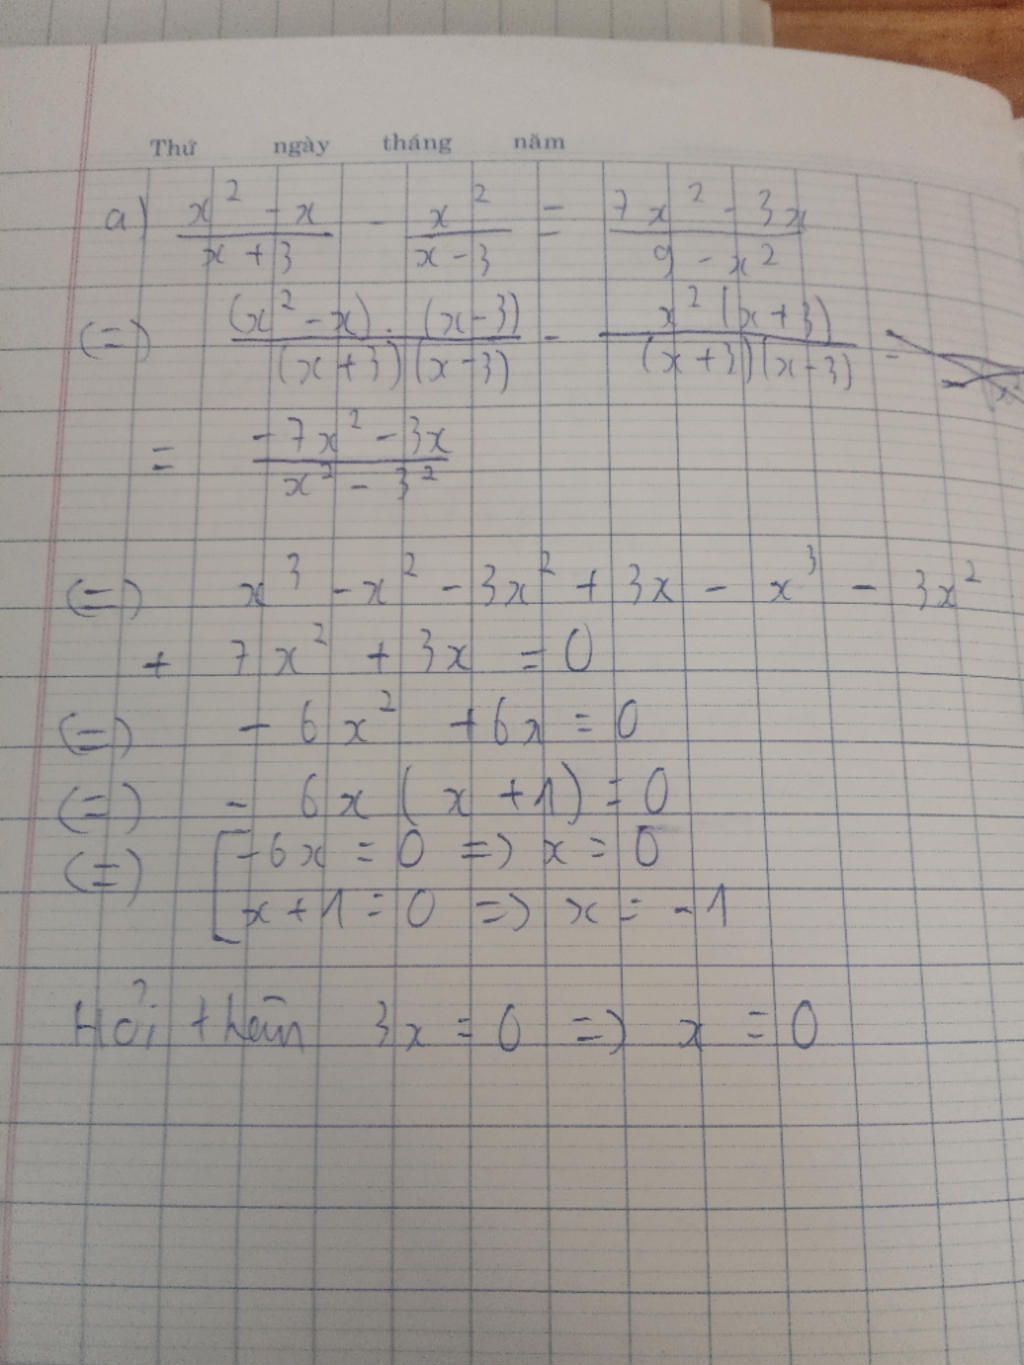 Thứ ngày tháng năm
a) \frac{x^2 - x}{x + 3} - \frac{x^2}{x - 3} = \frac{7x^2 - 3x}{9 - x^2}
(=) \frac{(x^2 - x) . (x - 3)}{(x + 3)(x - 3)} - \frac{x^2 (x + 3)}{(x + 3)(x - 3)} =
= \frac{-7x^2 - 3x}{x^2 - 3^2}
(=) x^3 - x^2 - 3x^2 + 3x - x^3 - 3x^2
+ 7x^2 + 3x = 0
(=) - 6x^2 + 6x = 0
(=) - 6x (x + 1) = 0
(=) [ -6x = 0 => x = 0
x + 1 = 0 => x = -1
Hỏi thần 3x = 0 => x = 0